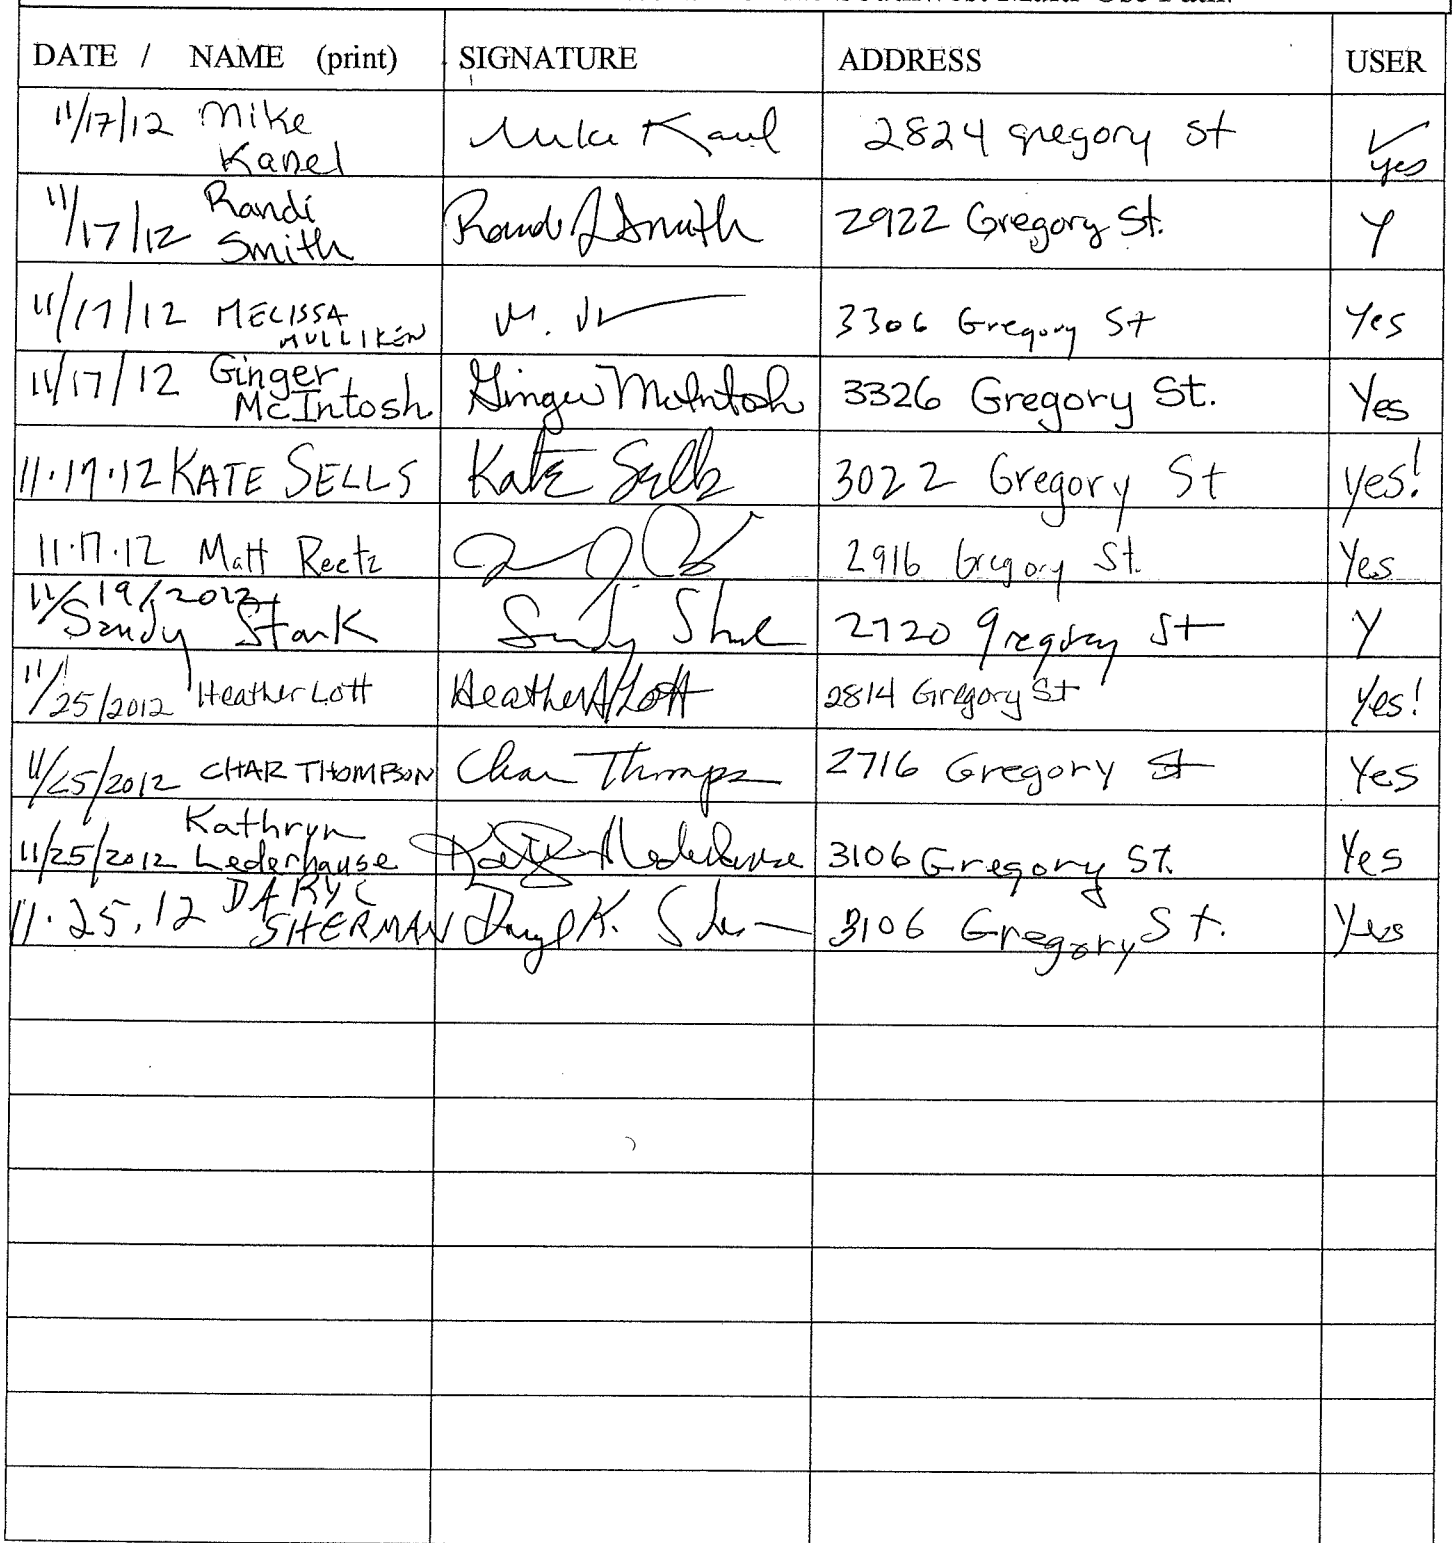 Southwest Multi-Use Path.
DATE / NAME (print) SIGNATURE ADDRESS USER
11/17/12 Mike Kanel Mike Kanel 2824 gregory st ✓ yes
11/17/12 Randi Smith Randi J Smith 2922 Gregory St. Y
11/17/12 MELISSA MULLIKEN M. 3306 Gregory St Yes
11/17/12 Ginger McIntosh Ginger McIntosh 3326 Gregory St. Yes
11.17.12 KATE SELLS Kate Sells 3022 Gregory St yes!
11.17.12 Matt Reetz 2916 Gregory St. Yes
11/19/2012 Sandy Stark Sandy Stark 2720 gregory St Y
11/25/2012 Heather Lott Heather A Lott 2814 Gregory St Yes!
11/25/2012 CHAR THOMPSON Char Thompson 2716 Gregory St Yes
11/25/2012 Kathryn Lederhause Lederhause 3106 Gregory St. Yes
11.25.12 DARYL SHERMAN Daryl K. Sherman 3106 Gregory St. Yes